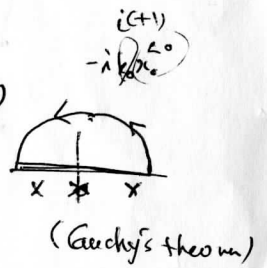 i(+1)
<0
-i k₀x₀
x x x
(Cauchy's theorem)